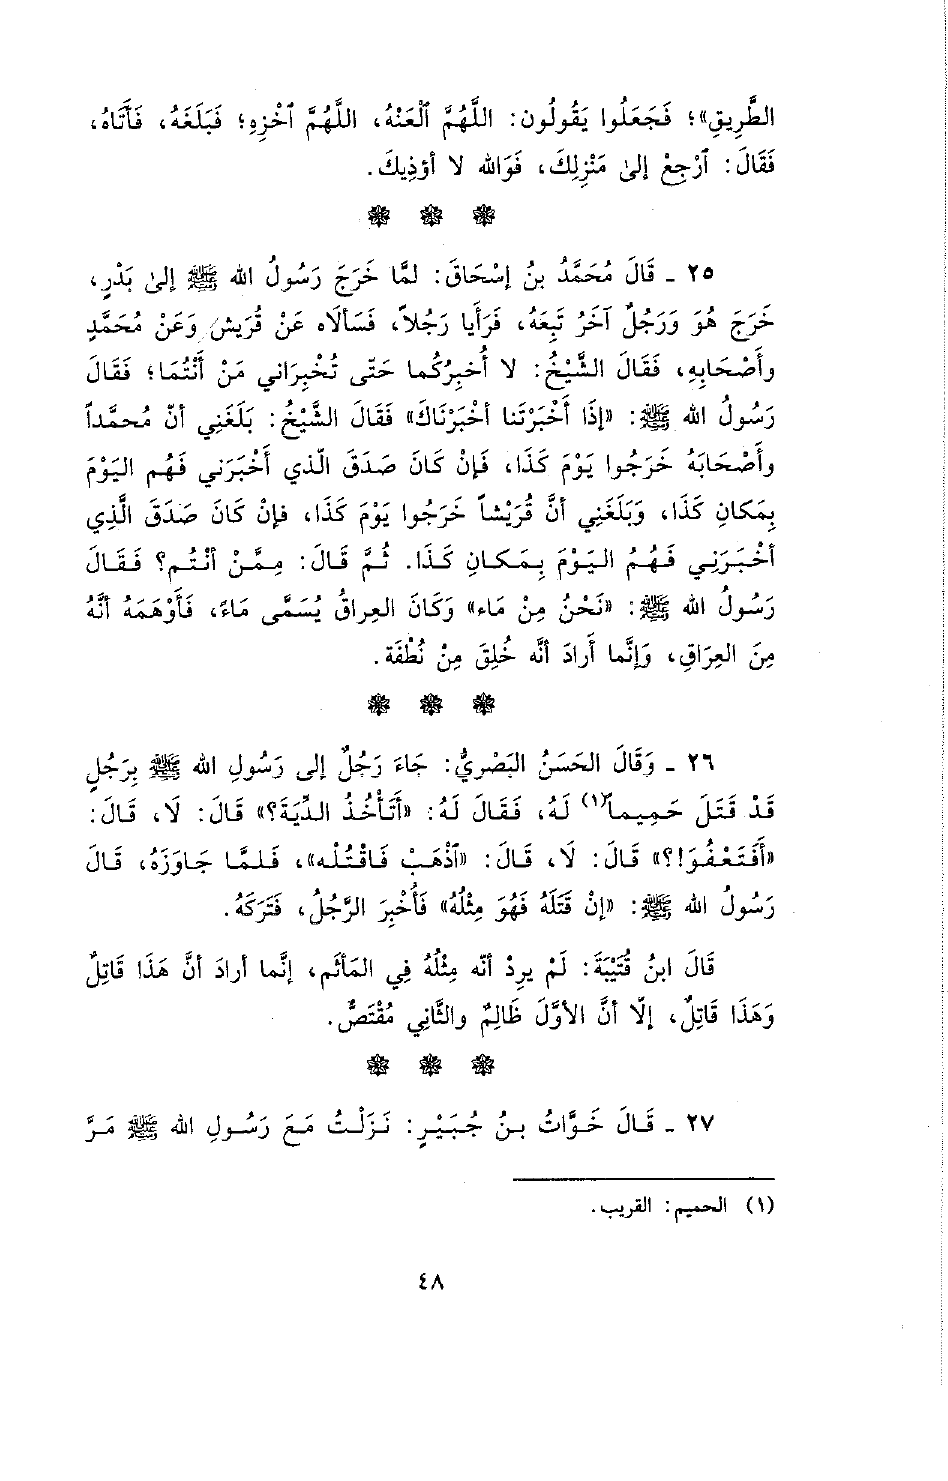 الطَّرِيقِ»؛ فَجَعَلُوا يَقُولُون: اللَّهُمَّ ٱلْعَنْهُ، اللَّهُمَّ ٱخْزِهِ؛ فَبَلَغَهُ، فَأَتَاهُ،
فَقَالَ: ٱرْجِعْ إلىٰ مَنْزِلِكَ، فَوَالله لا أوْذِيكَ.
٢٥ ـ قَالَ مُحَمَّدُ بنُ إسْحَاقَ: لمَّا خَرَجَ رَسُولُ الله ﷺ إلىٰ بَدْرٍ،
خَرَجَ هُوَ وَرَجُلٌ آخَرُ تَبِعَهُ، فَرَأَيا رَجُلاً، فَسَألَاه عَنْ قُرَيش، وَعَنْ مُحَمَّدٍ
وأَصْحَابِهِ، فَقَالَ الشَّيْخُ: لا أُخبِرُكُما حَتّى تُخْبِرَاني مَنْ أَنْتُمَا؛ فَقَالَ
رَسُولُ الله ﷺ: «إذَا أَخْبَرْتَنا أخبَرْنَاكَ» فَقَالَ الشَّيْخُ: بَلَغَنِي أنّ مُحمَّداً
وأَصْحَابَهُ خَرَجُوا يَوْمَ كَذَا، فَإنْ كَانَ صَدَقَ الّذي أَخْبَرَني فَهُم اليَوْمَ
بِمَكانِ كَذَا، وَبَلَغَنِي أنَّ قُرَيْشاً خَرَجُوا يَوْمَ كَذَا، فإنْ كَانَ صَدَقَ الَّذِي
أخْبَرَنِي فَهُم اليَوْمَ بِمَكانِ كَذَا. ثُمَّ قَالَ: مِمَّنْ أنْتُم؟ فَقَالَ
رَسُولُ الله ﷺ: «نَحْنُ مِنْ مَاء» وَكَانَ العِراقُ يُسَمَّى مَاءً، فَأَوْهَمَهُ أنَّهُ
مِنَ العِرَاقِ، وَإنَّما أَرادَ أنَّه خُلِقَ مِنْ نُطْفَة.
٢٦ ـ وَقَالَ الحَسَنُ البَصْرِيُّ: جَاءَ رَجُلٌ إلى رَسُولِ الله ﷺ بِرَجُلٍ
قَدْ قَتَلَ حَمِيماً(١) لَهُ، فَقَالَ لَهُ: «أَتَأْخُذُ الدِّيَةَ؟» قَالَ: لَا، قَالَ:
«أَفَتَعْفُوَ!؟» قَالَ: لَا، قَالَ: «ٱذْهَبْ فَاقْتُلْه»، فَلمَّا جَاوَزَهُ، قَالَ
رَسُولُ الله ﷺ: «إنْ قَتَلَهُ فَهُوَ مِثْلُهُ» فَأُخْبِرَ الرَّجُلُ، فَتَرَكَهُ.
قَالَ ابنُ قُتَيْبَةَ: لَمْ يرِدْ أنّه مِثْلُهُ فِي المَأثَم، إنَّما أرادَ أنَّ هَذَا قَاتِلٌ
وَهَذَا قَاتِلٌ، إلّا أنَّ الأوَّلَ ظَالِمٌ والثَّانِي مُقْتَصٌّ.
٢٧ ـ قَالَ خَوَّاتُ بنُ جُبَيْرٍ: نَزَلْتُ مَعَ رَسُولِ الله ﷺ مَرَّ
(١) الحميم: القريب.
٤٨